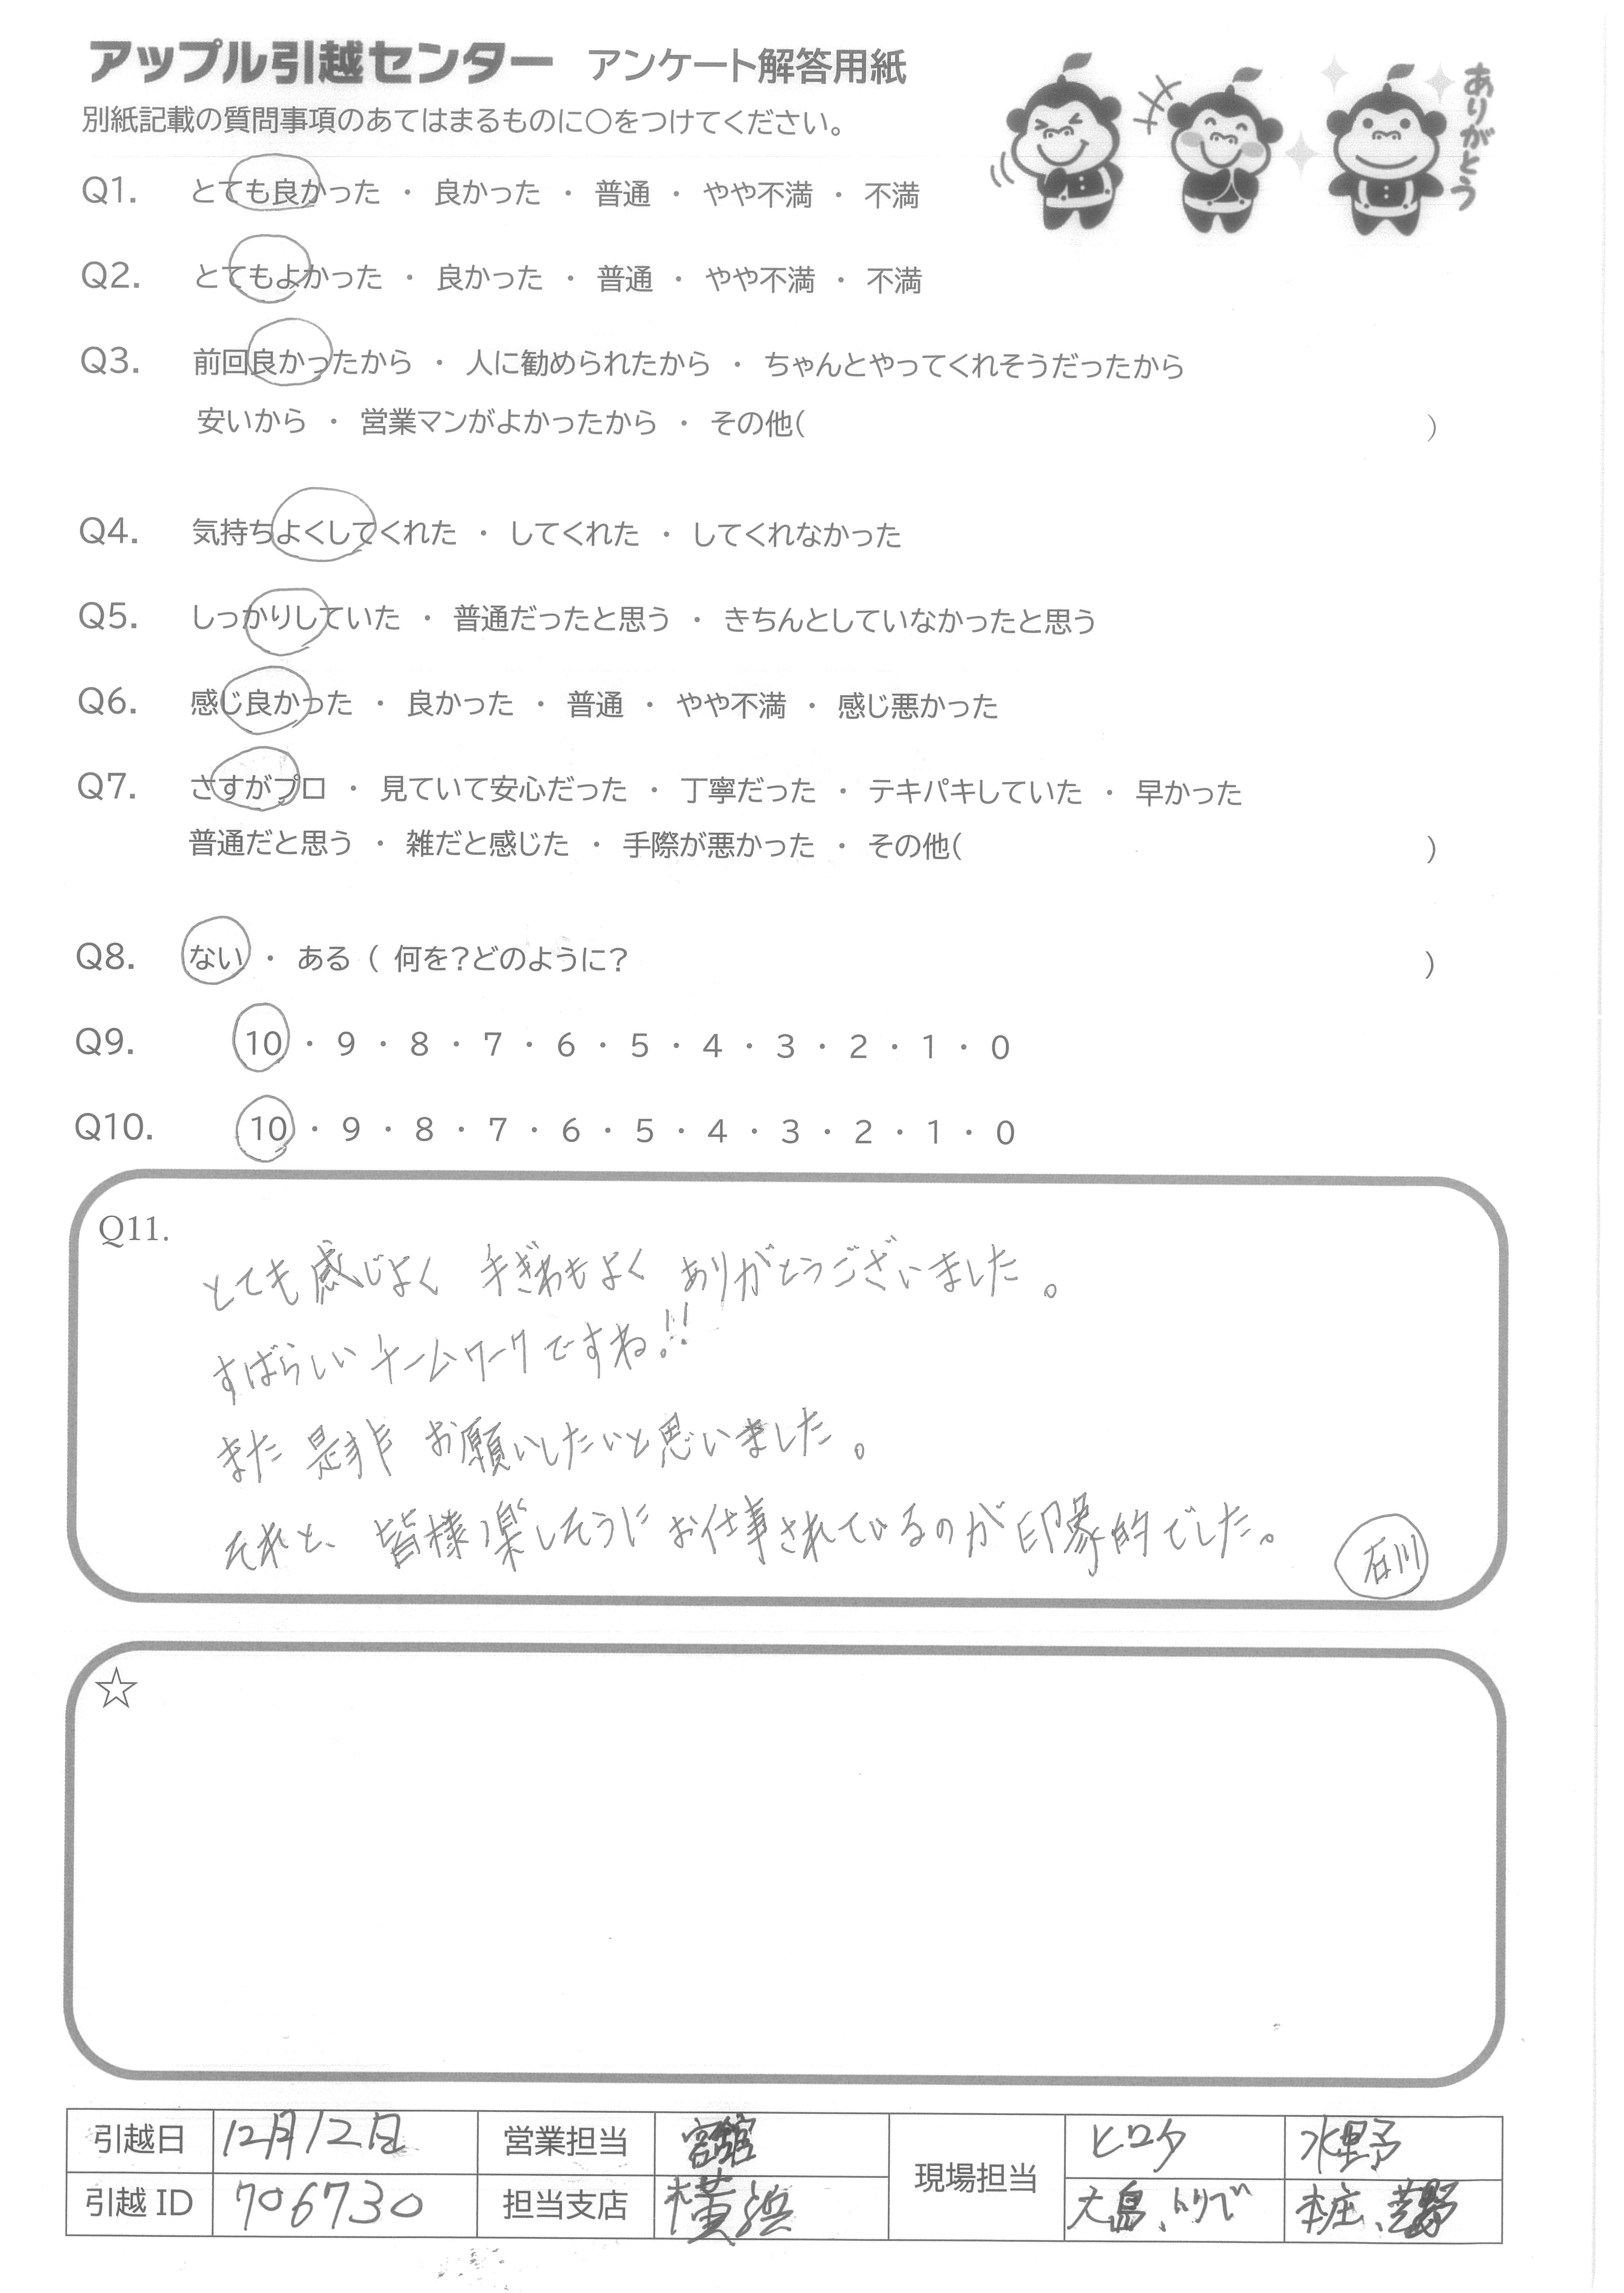 アップル引越センター アンケート解答用紙
ありがとう
別紙記載の質問事項のあてはまるものに○をつけてください。
Q1. とても良かった ・ 良かった ・ 普通 ・ やや不満 ・ 不満
Q2. とてもよかった ・ 良かった ・ 普通 ・ やや不満 ・ 不満
Q3. 前回良かったから ・ 人に勧められたから ・ ちゃんとやってくれそうだったから
安いから ・ 営業マンがよかったから ・ その他( )
Q4. 気持ちよくしてくれた ・ してくれた ・ してくれなかった
Q5. しっかりしていた ・ 普通だったと思う ・ きちんとしていなかったと思う
Q6. 感じ良かった ・ 良かった ・ 普通 ・ やや不満 ・ 感じ悪かった
Q7. さすがプロ ・ 見ていて安心だった ・ 丁寧だった ・ テキパキしていた ・ 早かった
普通だと思う ・ 雑だと感じた ・ 手際が悪かった ・ その他( )
Q8. ない ・ ある ( 何を?どのように? )
Q9. 10 ・ 9 ・ 8 ・ 7 ・ 6 ・ 5 ・ 4 ・ 3 ・ 2 ・ 1 ・ 0
Q10. 10 ・ 9 ・ 8 ・ 7 ・ 6 ・ 5 ・ 4 ・ 3 ・ 2 ・ 1 ・ 0
Q11.
とても感じよく 手ぎわもよく ありがとうございました。
すばらしいチームワークですね!!
また是非 お願いしたいと思いました。
それと、皆様楽しそうにお仕事されているのが印象的でした。 石川
☆
引越日 12月12日 営業担当 現場担当 ヒロタ 水野
引越ID 706730 担当支店 横浜 大島、トリデ 本庄、